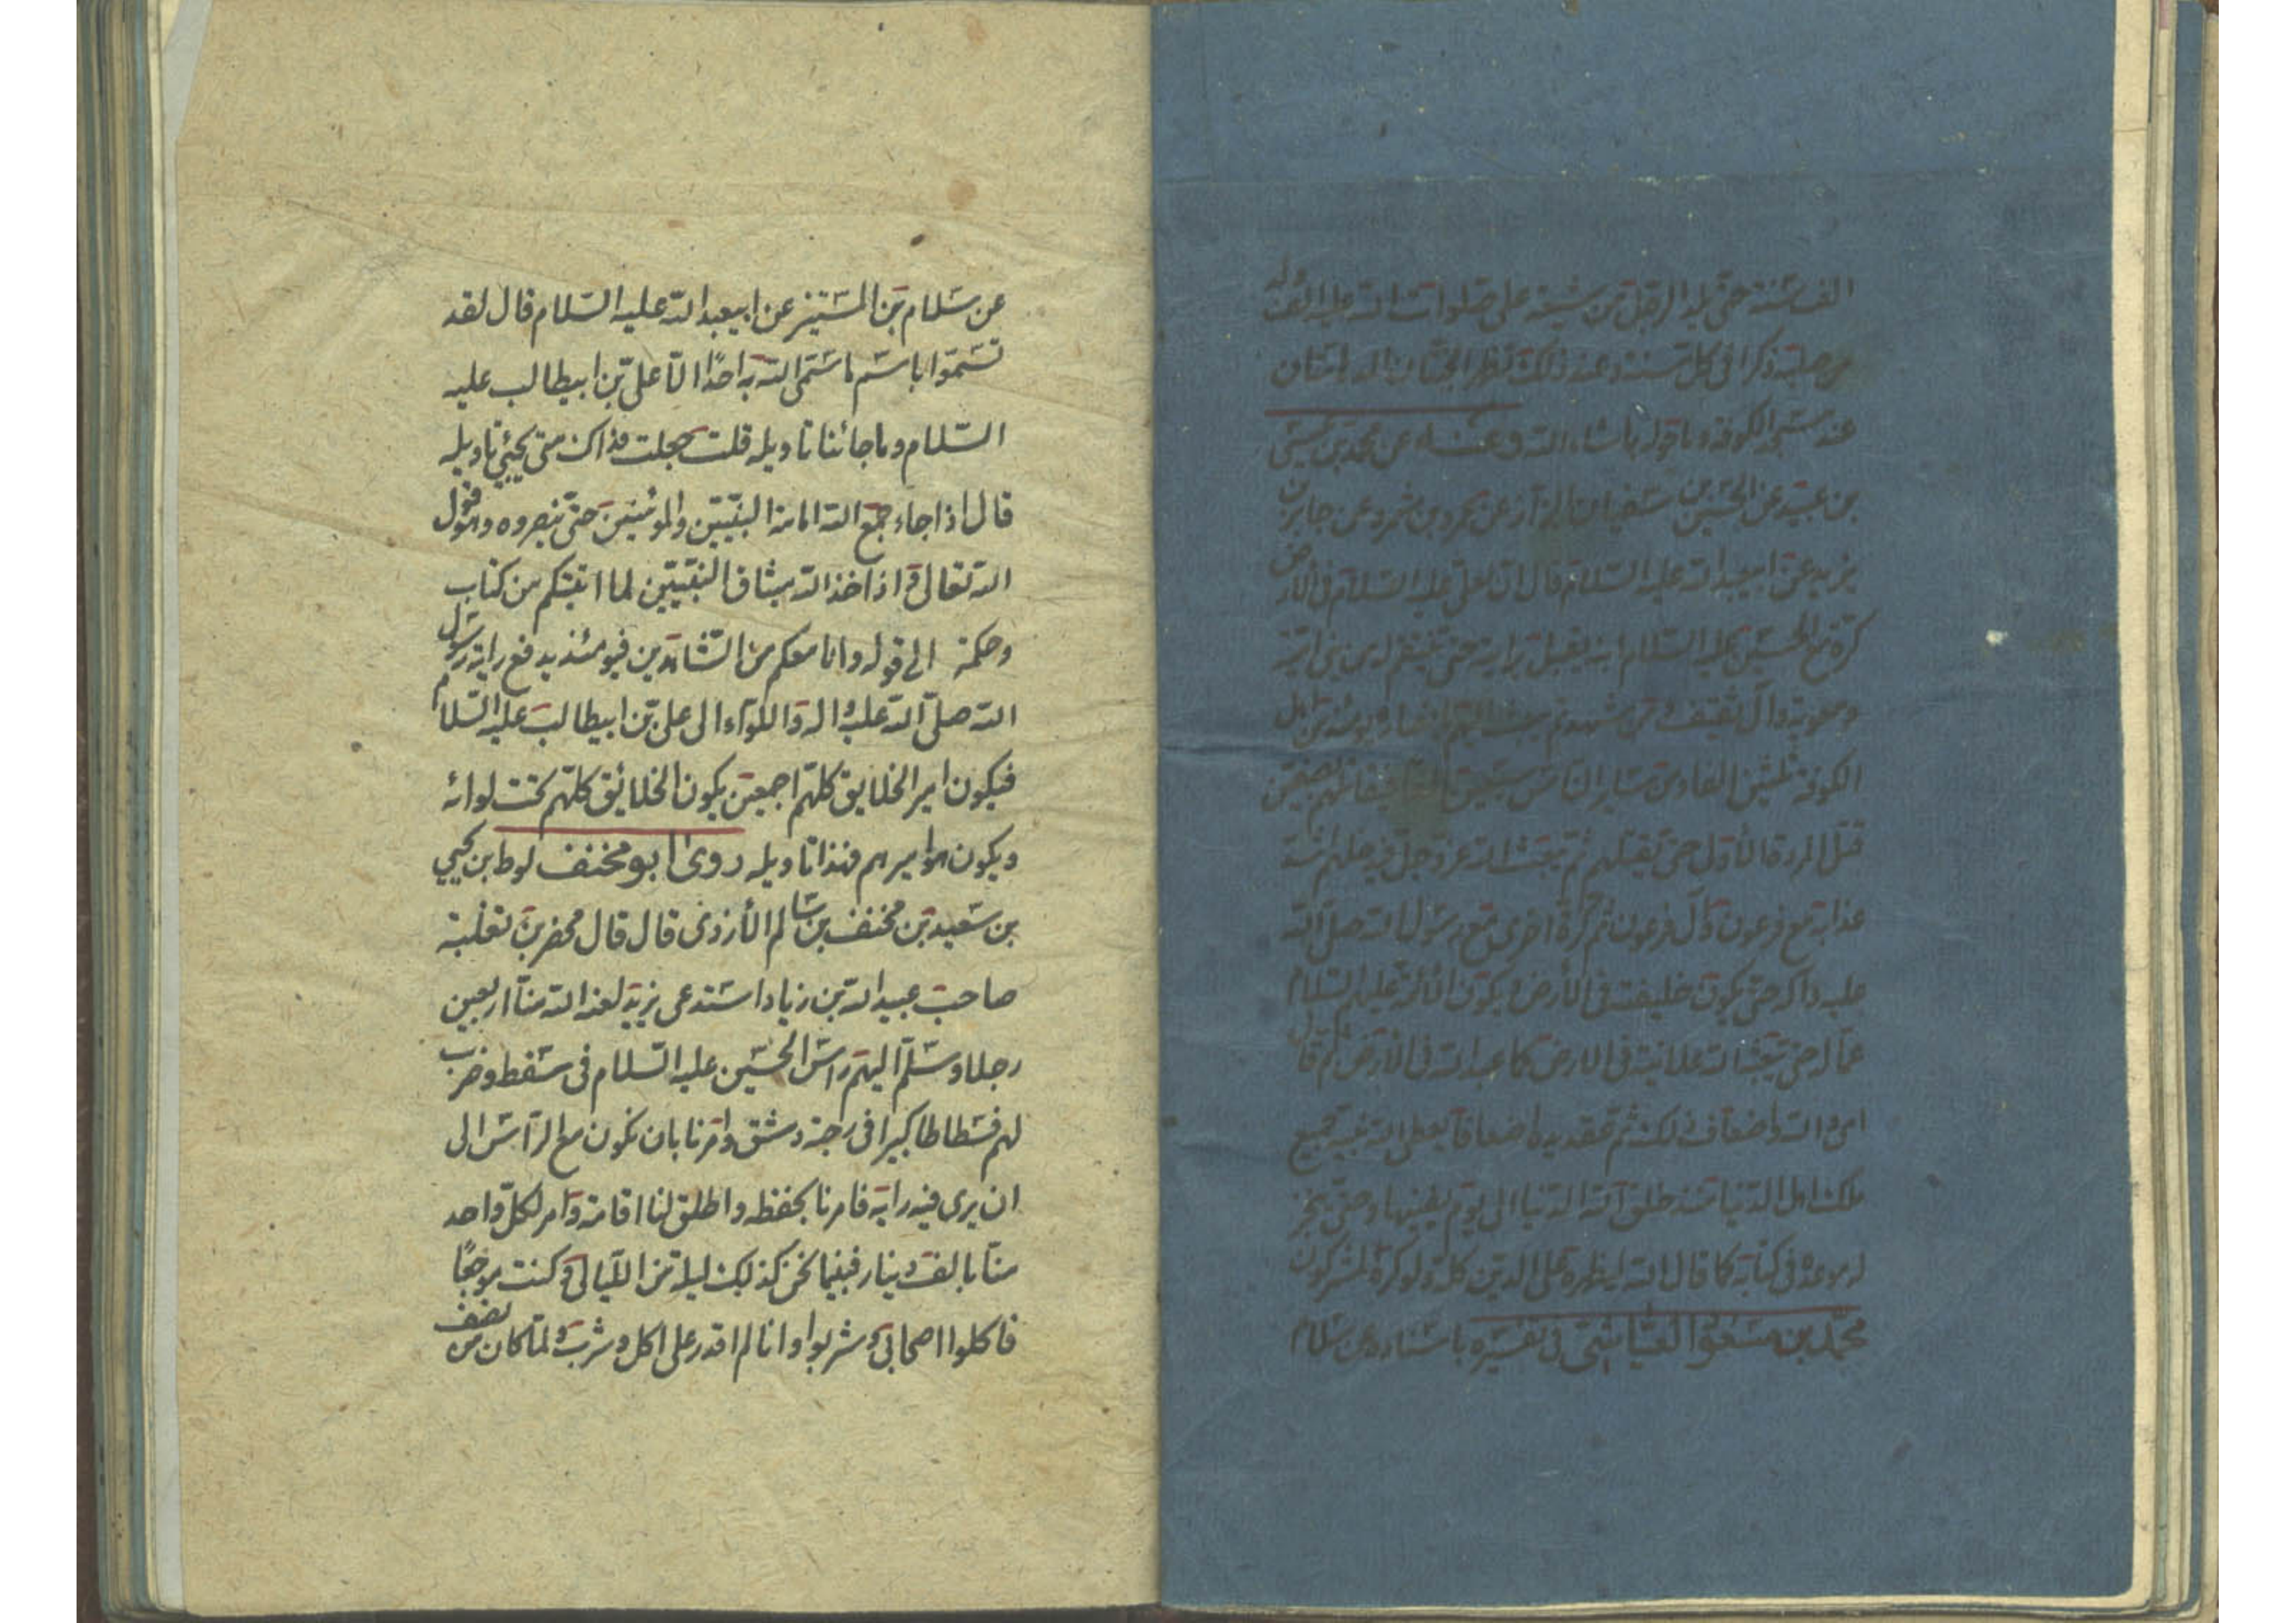 الف سنة حتى يلد الرجل من شيعة علي صلوات الله عليه الف ولد
من صلبه ذكرا في كل سنة وعند ذلك تظهر الجنتان المدهامتان
عند مسجد الكوفة وما حوله بما شاء الله وعنه عن محمد بن عيسى
بن عبيد عن الحسين بن سفيان البزاز عن عمرو بن شمر وعن جابر بن
يزيد عن ابيعبد الله عليه السلام قال ان لعلي عليه السلام في الأرض
كرة مع الحسين عليه السلام ابنه يقبل برايته حتى ينتقم له من بني امية
ومعوية وآل ثقيف ومن شهد ثم يبعث اليهم بانصاره يومئذ من اهل
الكوفة ثلثين الفا ومن ساير الناس سبعين الفا فيقاتلهم بصفين
مثل المرة الأولى حتى يقتلهم ثم يبعث الله عز وجل فيدخلهم اشد
عذابه مع فرعون وآل فرعون ثم كرة اخرى مع رسول الله صلى الله
عليه واله حتى يكون خليفته في الأرض ويكون الائمة عليهم السلام
عماله حتى يعبد الله علانية في الارض كما عبد الله في الأرض ثم قال
اي والله واضعاف ذلك ثم عقد يده اضعافا يعطي الله نبيه جميع
ملك اهل الدنيا منذ خلق الله الدنيا الى يوم يفنيها وحتى ينجز
له موعده في كتابه كما قال الله ليظهره على الدين كله ولو كره المشركون
محمد بن مسعود العياشي في تفسيره باسناده عن سلام
عن سلام بن المستنير عن ابيعبد الله عليه السلام قال لقد
تسموا باسم ما سمى الله به احدا الا علي بن ابيطالب عليه
السلام وما جائنا تاويله قلت جعلت فداك متى يجيئ تاويله
قال اذا جاء جمع الله امامه النبيين والمؤمنين حتى ينصروه وهو قول
الله تعالى و اذ اخذ الله ميثاق النبيين لما اتيتكم من كتاب
وحكمة الى قوله وانا معكم من الشاهدين فيومئذ يدفع راية رسول
الله صلى الله عليه واله واللوآء الى علي بن ابيطالب عليه السلام
فيكون امير الخلايق كلهم اجمعين يكون الخلائق كلهم تحت لوائه
ويكون هو اميرهم فهذا تاويله روى ابو مخنف لوط بن يحيى
بن سعيد بن مخنف بن سالم الأزدي قال قال محفر بن ثعلبة
صاحب عبيد الله بن زياد استدعى يزيد لعنه الله منا اربعين
رجلا وسلم اليهم راس الحسين عليه السلام في سفط وضرب
لهم فسطاطا كبيرا في رحبة دمشق وامرنا بان نكون مع الرأس الى
ان يرى فيه رايه فامرنا بحفظه واطلق لنا اقامة وامر لكل واحد
منا بالف دينار فبينما نحن كذلك ليلة من الليالي وكنت موجعا
فاكلوا اصحابي وشربوا وانا لم اقدر على اكل وشرب ولما كان من نصف